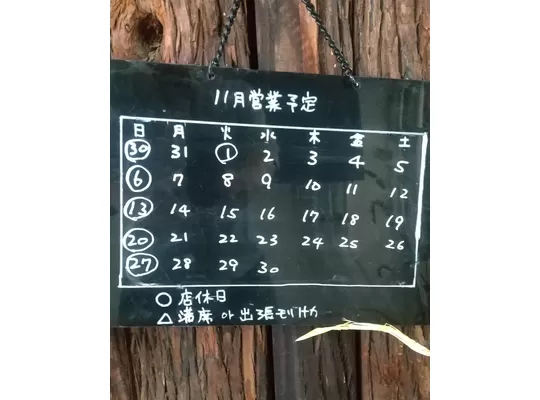 11月営業予定
日 月 火 水 木 金 土
30 31 1 2 3 4 5
6 7 8 9 10 11 12
13 14 15 16 17 18 19
20 21 22 23 24 25 26
27 28 29 30
○ 店休日
△ 満席 or 出張